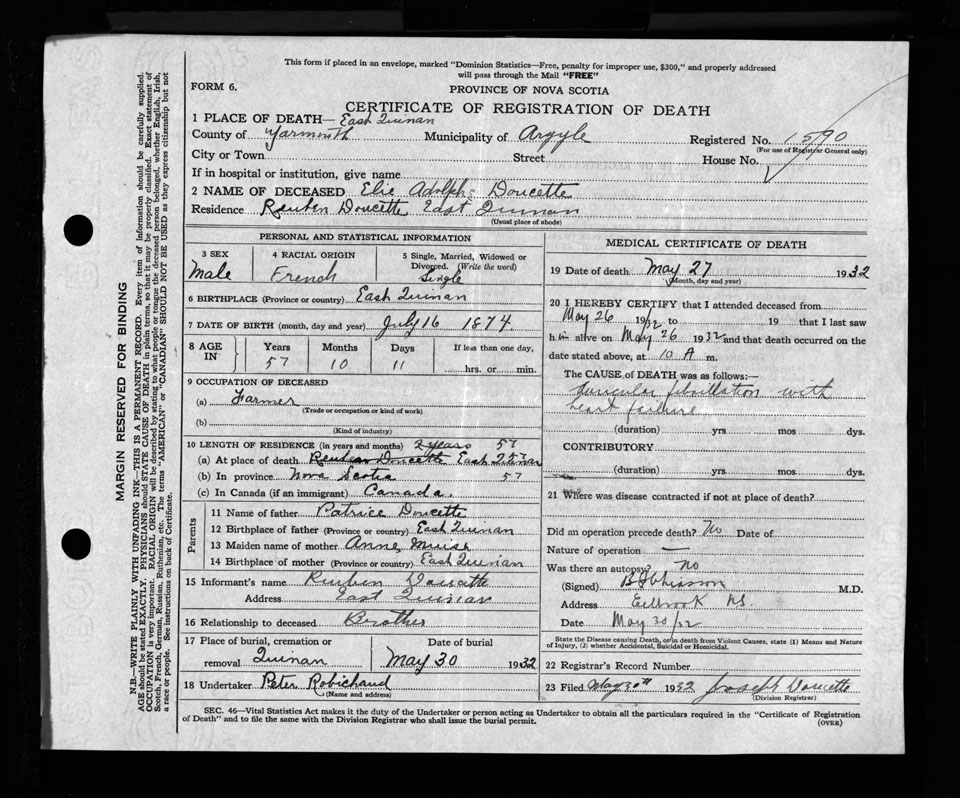 This form if placed in an envelope, marked "Dominion Statistics—Free, penalty for improper use, $300," and properly addressed
will pass through the Mail "FREE"
FORM 6.
PROVINCE OF NOVA SCOTIA
CERTIFICATE OF REGISTRATION OF DEATH
1 PLACE OF DEATH— East Quinan
County of Yarmouth Municipality of Argyle Registered No. 1590
(For use of Registrar General only)
City or Town Street House No.
If in hospital or institution, give name
2 NAME OF DECEASED Elie Adolph Doucette
Residence Reuben Doucette East Quinan
(Usual place of abode)
PERSONAL AND STATISTICAL INFORMATION
3 SEX
Male
4 RACIAL ORIGIN
French
5 Single, Married, Widowed or
Divorced. (Write the word)
Single
6 BIRTHPLACE (Province or country) East Quinan
7 DATE OF BIRTH (month, day and year) July 16 1874
8 AGE
IN
Years Months Days If less than one day,
57 10 11 hrs. or min.
9 OCCUPATION OF DECEASED
(a) Farmer
(Trade or occupation or kind of work)
(b)
(Kind of industry)
10 LENGTH OF RESIDENCE (in years and months) 2 years 57
(a) At place of death Reuben Doucette East
(b) In province Nova Scotia 57
(c) In Canada (if an immigrant) Canada.
Parents
11 Name of father Patrice Doucette
12 Birthplace of father (Province or country) East Quinan
13 Maiden name of mother Anne Muise
14 Birthplace of mother (Province or country) East Quinan
15 Informant's name Reuben Doucette
Address East Quinan
16 Relationship to deceased Brother
17 Place of burial, cremation or Date of burial
removal Quinan May 30 1932
18 Undertaker Peter Robichaud
(Name and address)
MEDICAL CERTIFICATE OF DEATH
19 Date of death May 27 1932
(Month, day and year)
20 I HEREBY CERTIFY that I attended deceased from
May 26 1932 to 19 that I last saw
him alive on May 26 1932 and that death occurred on the
date stated above, at 10 A m.
The CAUSE of DEATH was as follows:—
Auricular fibrillation with
heart failure
(duration) yrs mos dys.
CONTRIBUTORY
(duration) yrs. mos dys.
21 Where was disease contracted if not at place of death?
Did an operation precede death? No Date of
Nature of operation —
Was there an autopsy? No
(Signed) Chiasson M.D.
Address Eelbrook NS.
Date May 30/32
State the Disease causing Death, or in death from Violent Causes, state (1) Means and Nature
of Injury, (2) whether Accidental, Suicidal or Homicidal.
22 Registrar's Record Number
23 Filed May 30th 1932 Joseph Doucette
(Division Registrar)
SEC. 46—Vital Statistics Act makes it the duty of the Undertaker or person acting as Undertaker to obtain all the particulars required in the "Certificate of Registration
of Death" and to file the same with the Division Registrar who shall issue the burial permit.
(OVER)
MARGIN RESERVED FOR BINDING
N.B.—WRITE PLAINLY WITH UNFADING INK—THIS IS A PERMANENT RECORD. Every item of information should be carefully supplied.
AGE should be stated EXACTLY. PHYSICIANS should STATE CAUSE OF DEATH in plain terms, so that it may be properly classified. Exact statement of
OCCUPATION is very important. RACIAL ORIGIN will be described by stating to what people or tongue the deceased person belonged, whether English, Irish,
Scotch, French, German, Russian, Ruthenian, etc. The terms "AMERICAN" or "CANADIAN" SHOULD NOT BE USED as they express citizenship but not
a race or people. See instructions on back of Certificate.